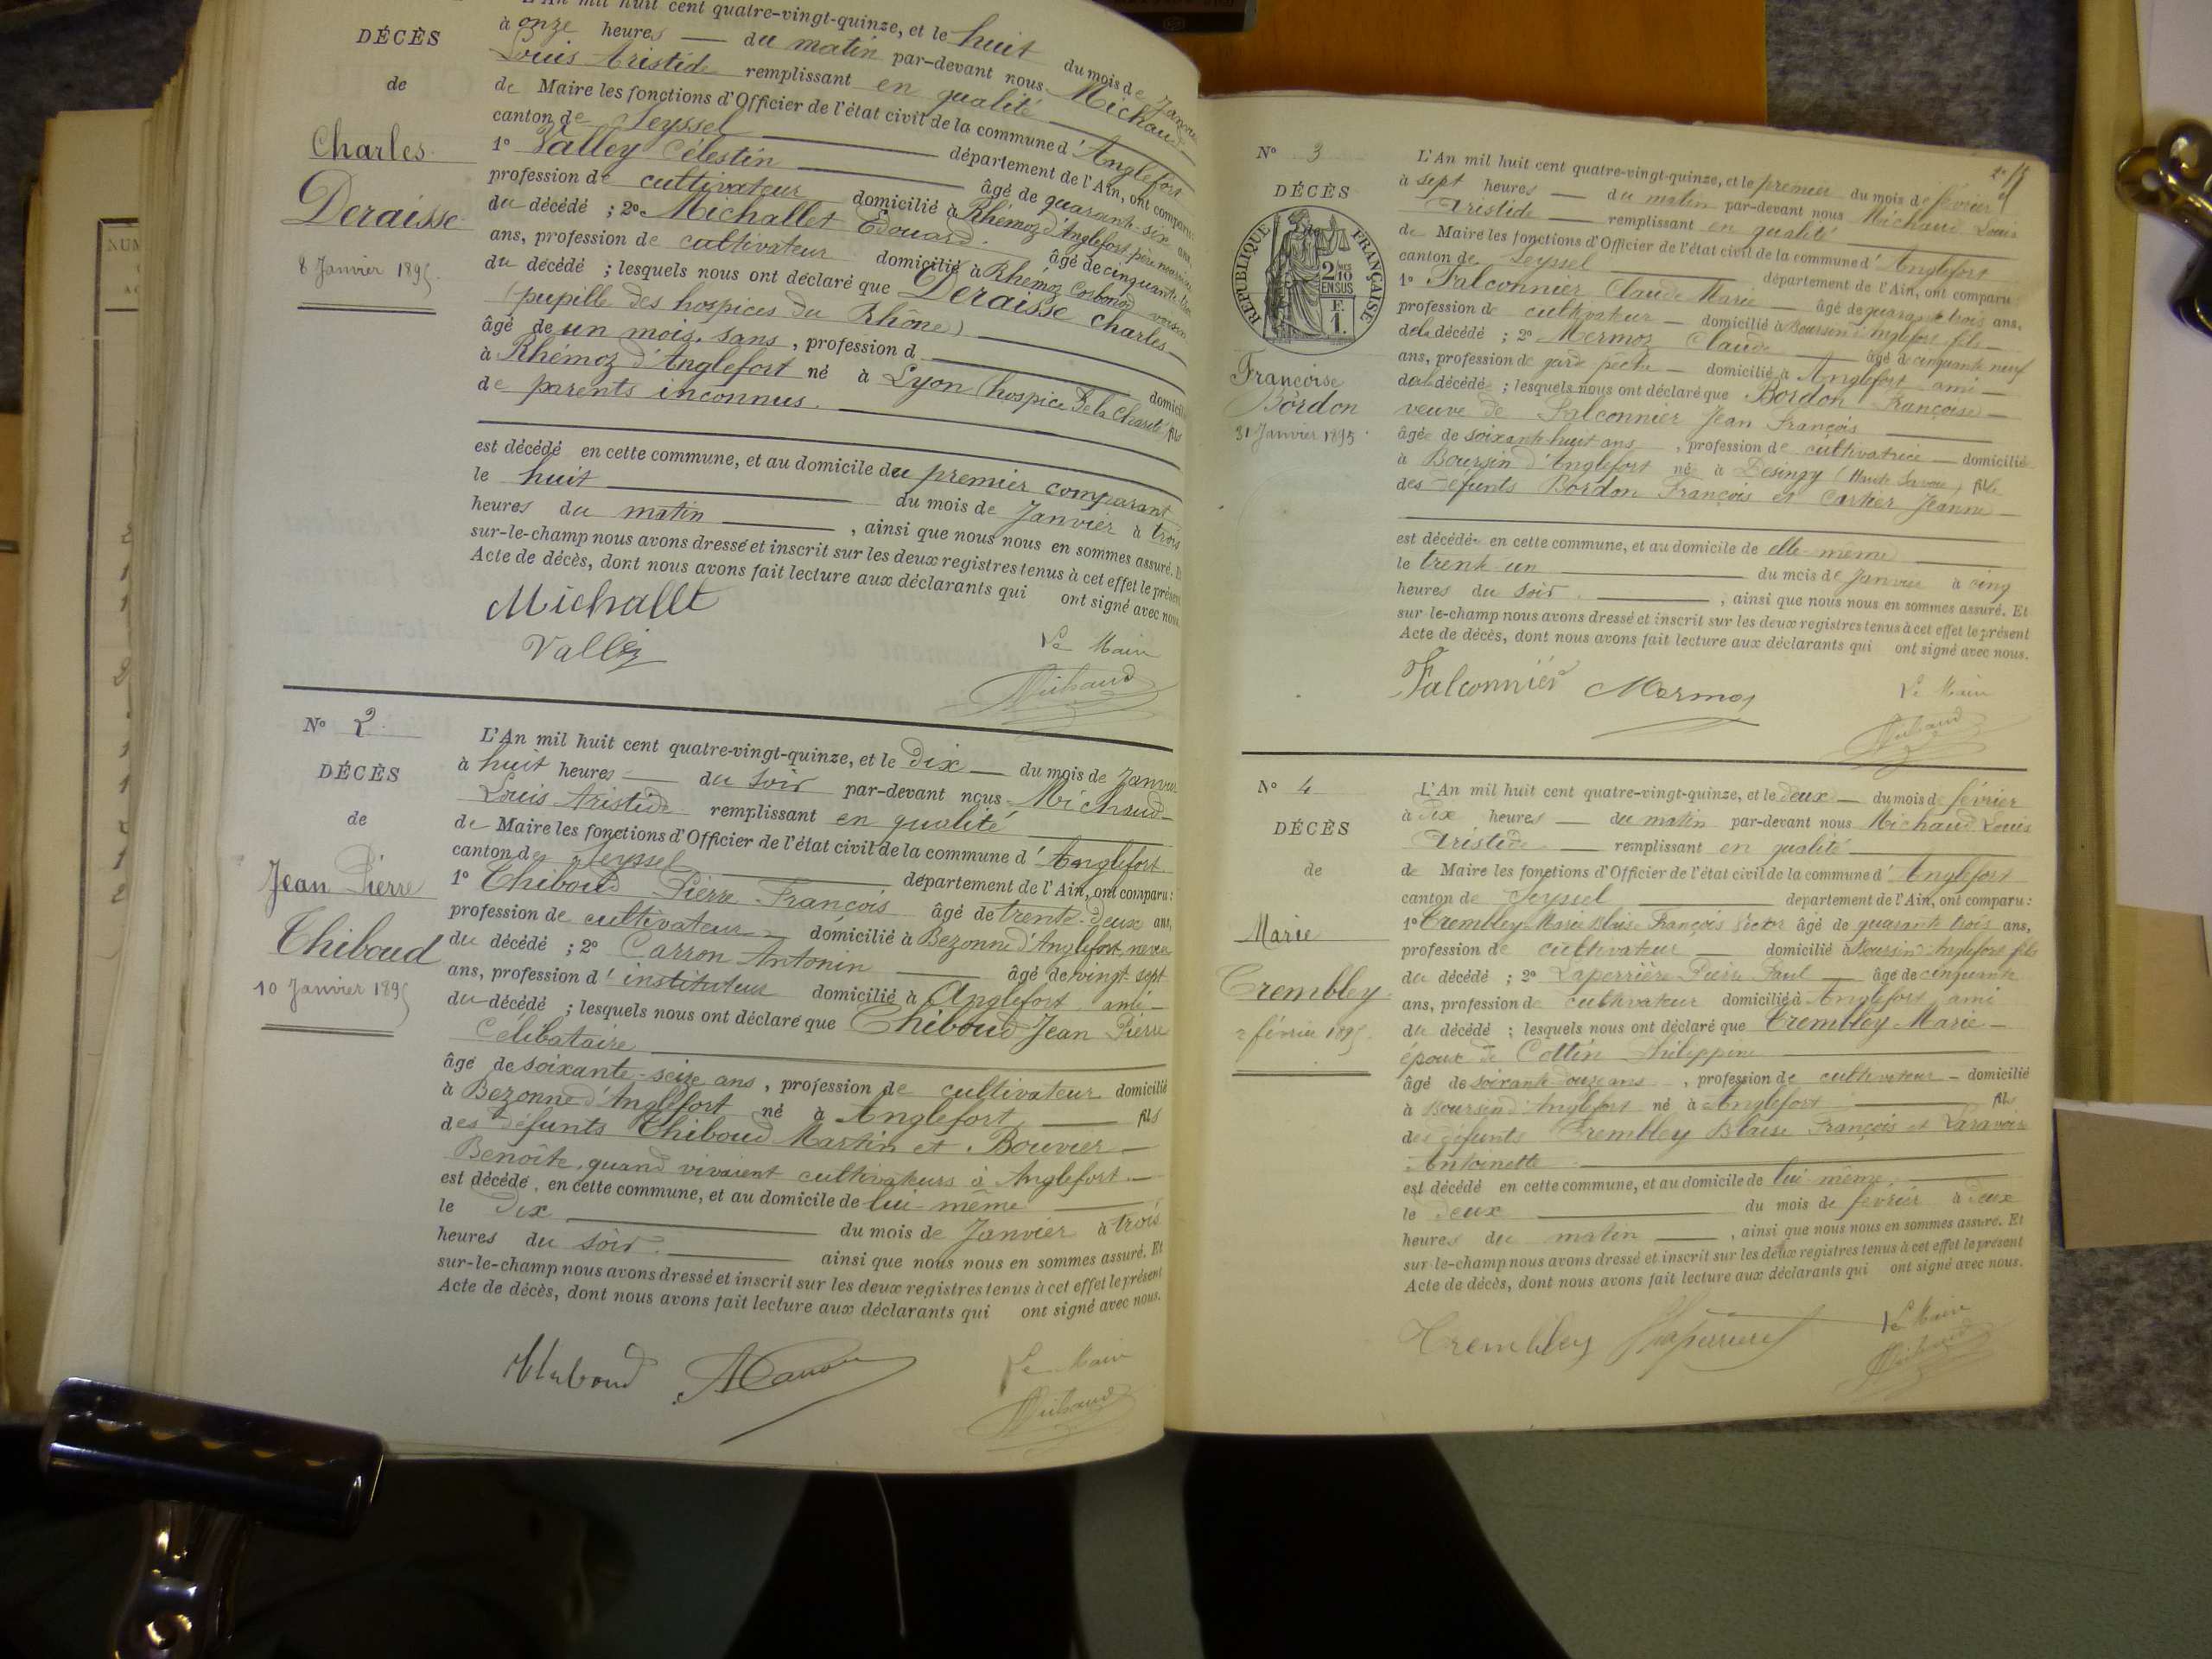 L'An mil huit cent quatre-vingt-quinze, et le huit du mois de Janvier
à onze heures du matin par-devant nous Michaud
Louis Aristide remplissant en qualité
de Maire les fonctions d'Officier de l'état civil de la commune d'Anglefort
canton de Seyssel département de l'Ain, ont comparu:
1° Valley Célestin âgé de quarante-six ans,
profession de cultivateur domicilié à Rhémoz d'Anglefort, père nourricier
du décédé ; 2° Michallet Edouard. âgé de cinquante
ans, profession de cultivateur domicilié à Rhémoz Corbonod voisin
du décédé ; lesquels nous ont déclaré que Deraisse Charles
(pupille des hospices du Rhône)
âgé de un mois, sans, profession d domicilié
à Rhémoz d'Anglefort né à Lyon (hospice de la Charité) fils
de parents inconnus.
est décédé en cette commune, et au domicile du premier comparant
le huit du mois de Janvier à trois
heures du matin , ainsi que nous nous en sommes assuré. Et
sur-le-champ nous avons dressé et inscrit sur les deux registres tenus à cet effet le présent
Acte de décès, dont nous avons fait lecture aux déclarants qui ont signé avec nous.
Michallet
Valley
Le Maire
Michaud
DÉCÈS
de
Charles
Deraisse
8 Janvier 1895
N° 2
DÉCÈS
de
Jean Pierre
Thiboud
10 Janvier 1895
L'An mil huit cent quatre-vingt-quinze, et le dix du mois de Janvier
à huit heures du soir par-devant nous Michaud
Louis Aristide remplissant en qualité
de Maire les fonctions d'Officier de l'état civil de la commune d'Anglefort
canton de Seyssel département de l'Ain, ont comparu:
1° Thiboud Pierre François âgé de trente-deux ans,
profession de cultivateur domicilié à Bezonne d'Anglefort, neveu
du décédé ; 2° Carron Antonin âgé de vingt-sept
ans, profession d'instituteur domicilié à Anglefort ami
du décédé ; lesquels nous ont déclaré que Thiboud Jean Pierre
célibataire
âgé de soixante-seize ans, profession de cultivateur domicilié
à Bezonne d'Anglefort né à Anglefort fils
des défunts Thiboud Martin et Bouvier
Benoîte, quand vivaient cultivateurs à Anglefort.
est décédé, en cette commune, et au domicile de lui-même
le dix du mois de Janvier à trois
heures du soir. ainsi que nous nous en sommes assuré. Et
sur-le-champ nous avons dressé et inscrit sur les deux registres tenus à cet effet le présent
Acte de décès, dont nous avons fait lecture aux déclarants qui ont signé avec nous.
Thiboud ACarron
Le Maire
Michaud
N° 3
DÉCÈS
RÉPUBLIQUE FRANÇAISE
2 10
EN SUS
F.
1.
Françoise
Bordon
31 Janvier 1895
L'An mil huit cent quatre-vingt-quinze, et le premier du mois de février
à sept heures du matin par-devant nous Michaud Louis
Aristide remplissant en qualité
de Maire les fonctions d'Officier de l'état civil de la commune d'Anglefort
canton de Seyssel département de l'Ain, ont comparu
1° Falconnier Claude Marie âgé de quarante trois ans,
profession de cultivateur domicilié à Boursin d'Anglefort fils
de la décédé ; 2° Mermoz Claude âgé de cinquante neuf
ans, profession de garde pêche domicilié à Anglefort ami
de la décédée ; lesquels nous ont déclaré que Bordon Françoise
veuve de Falconnier Jean François
âgée de soixante-huit ans, profession de cultivatrice domicilié
à Boursin d'Anglefort né à Desingy (Haute Savoie) fille
des défunts Bordon François et Cartier Jeanne
est décédée en cette commune, et au domicile de elle-même
le trente un du mois de Janvier à cinq
heures du soir. , ainsi que nous nous en sommes assuré. Et
sur-le-champ nous avons dressé et inscrit sur les deux registres tenus à cet effet le présent
Acte de décès, dont nous avons fait lecture aux déclarants qui ont signé avec nous.
Falconnier Mermoz
Le Maire
Michaud
N° 4
DÉCÈS
de
Marie
Trembley
2 février 1895
L'An mil huit cent quatre-vingt-quinze, et le deux du mois de février
à dix heures du matin par-devant nous Michaud Louis
Aristide remplissant en qualité
de Maire les fonctions d'Officier de l'état civil de la commune d'Anglefort
canton de Seyssel département de l'Ain, ont comparu:
1° Trembley Marie Blaise François Victor âgé de quarante trois ans,
profession de cultivateur domicilié à Boursin d'Anglefort fils
du décédé ; 2° Laperrière Pierre Paul âgé de cinquante
ans, profession de cultivateur domicilié à Anglefort ami
du décédé ; lesquels nous ont déclaré que Trembley Marie
époux de Cottin Philippine
âgé de soixante douze ans, profession de cultivateur domicilié
à Boursin d'Anglefort né à Anglefort fils
des défunts Trembley Blaise François et Laravoire
Antoinette
est décédé en cette commune, et au domicile de lui-même.
le deux du mois de février à deux
heures du matin , ainsi que nous nous en sommes assuré. Et
sur-le-champ nous avons dressé et inscrit sur les deux registres tenus à cet effet le présent
Acte de décès, dont nous avons fait lecture aux déclarants qui ont signé avec nous.
Trembley Laperrière
Le Maire
Michaud